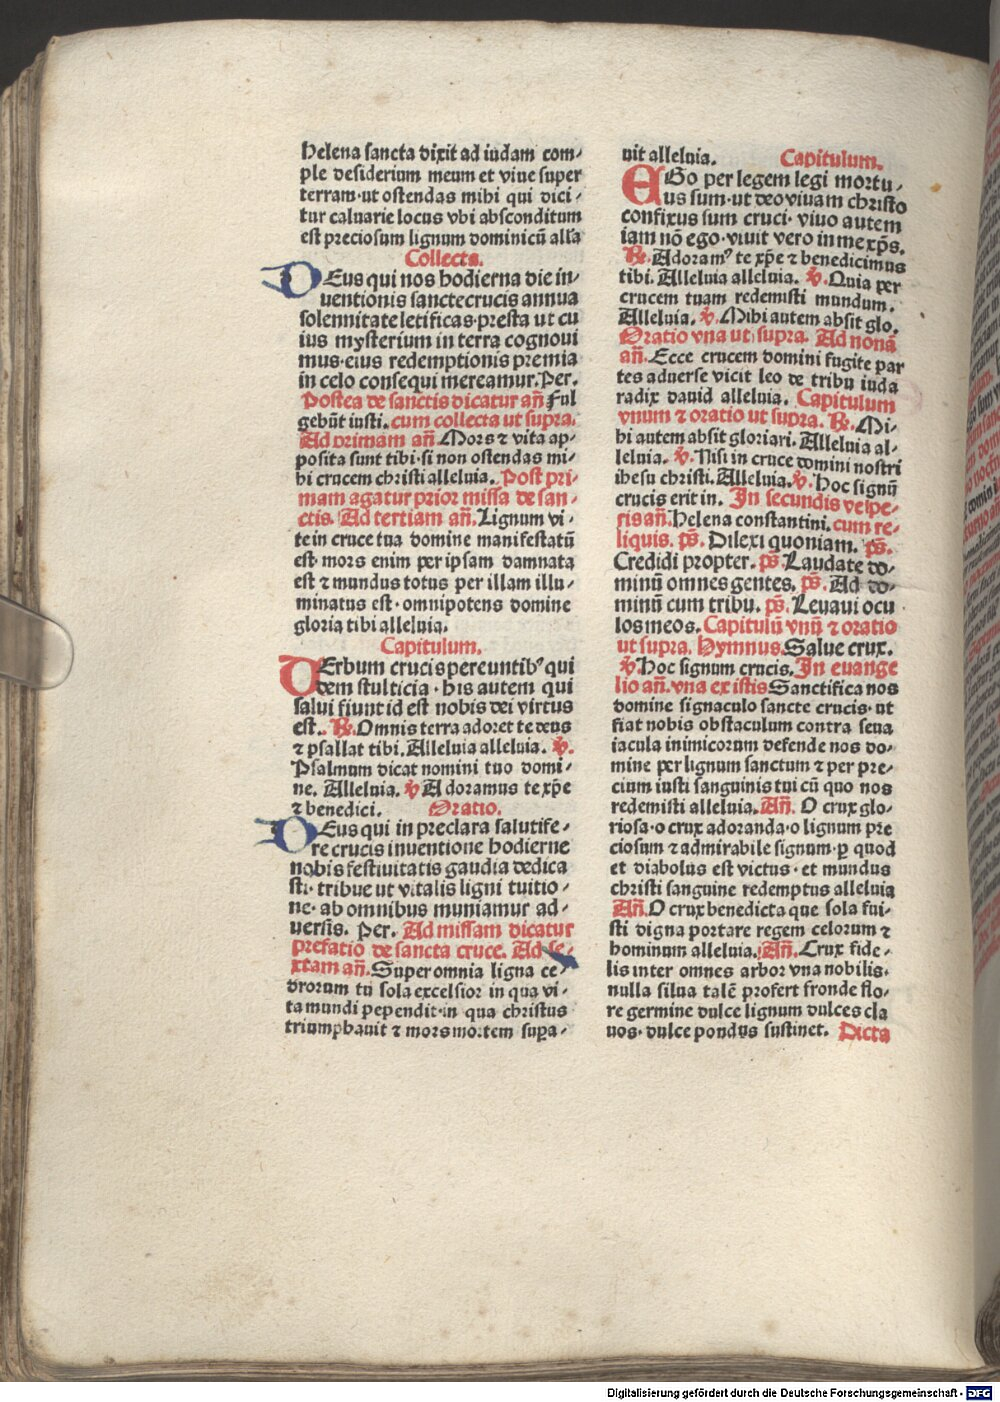 helena sancta dixit ad iudam com⸗
ple desiderium meum et viue super
terram·ut ostendas mihi qui dici⸗
tur caluarie locus vbi absconditum
est preciosum lignum dominicū alla
Collecta.
DEus qui nos hodierna die in⸗
uentionis sanctecrucis annua
solennitate letificas·presta ut cu
ius mysterium in terra cognoui
mus·eius redemptionis premia
in celo consequi mereamur. Per.
Postea de sanctis dicatur añ Ful
gebūt iusti. cum collecta ut supra.
Ad primam añ Mors ⁊ vita ap⸗
posita sunt tibi·si non ostendas mi⸗
hi crucem christi alleluia. Post pri⸗
mam agatur prior missa de san⸗
ctis. Ad tertiam añ. Lignum vi⸗
te in cruce tua domine manifestatū
est·mors enim per ipsam damnata
est ⁊ mundus totus per illam illu⸗
minatus est·omnipotens domine
gloria tibi alleluia.
Capitulum.
VErbum crucis pereuntibꝰ qui
dem stulticia·his autem qui
salui fiunt id est nobis dei virtus
est. ℟. Omnis terra adoret te deus
⁊ psallat tibi. Alleluia alleluia. ℣.
Psalmum dicat nomini tuo domi⸗
ne. Alleluia. ℣ Adoramus te xp̄e
⁊ benedici. Oratio.
DEus qui in preclara salutife⸗
re crucis inuentione hodierne
nobis festiuitatis gaudia dedica
sti·tribue ut vitalis ligni tuitio⸗
ne·ab omnibus muniamur ad⸗
uersis. Per. Ad missam dicatur
prefatio de sancta cruce. Ad se⸗
xtam añ. Super omnia ligna ce⸗
drorum tu sola excelsior in qua vi⸗
ta mundi pependit·in qua christus
triumphauit ⁊ mors mortem supa⸗
uit alleluia. Capitulum.
EGo per legem legi mortu⸗
us sum·ut deo viuam christo
confixus sum cruci·viuo autem
iam nō ego·viuit vero in me xp̄s.
℟. Adoramꝰ te xp̄e ⁊ benedicimus
tibi. Alleluia alleluia. ℣. Quia per
crucem tuam redemisti mundum.
Alleluia. ℣. Mihi autem absit glo.
Oratio vna ut supra. Ad nonā
añ. Ecce crucem domini fugite par
tes aduerse vicit leo de tribu iuda
radix dauid alleluia. Capitulum
vnum ⁊ oratio ut supra. ℟. Mi⸗
hi autem absit gloriari. Alleluia al⸗
leluia. ℣. Nisi in cruce domini nostri
ihesu christi. Alleluia. ℣. Hoc signū
crucis erit in. In secundis vespe⸗
ris añ. Helena constantini. cum re⸗
liquis. ps̄. Dilexi quoniam. ps̄.
Credidi propter. ps̄ Laudate do⸗
minū omnes gentes. ps̄. Ad do⸗
minū cum tribu. ps̄. Leuaui ocu
los meos. Capitulū vnū ⁊ oratio
ut supra. Hymnus. Salue crux.
℣. Hoc signum crucis. In euange
lio añ. vna ex istis Sanctifica nos
domine signaculo sancte crucis·ut
fiat nobis obstaculum contra seua
iacula inimicorum defende nos do⸗
mine per lignum sanctum ⁊ per pre⸗
cium iusti sanguinis tui cū quo nos
redemisti alleluia. Añ. O crux glo⸗
riosa·o crux adoranda·o lignum pre
ciosum ⁊ admirabile signum·ꝑ quod
et diabolus est victus·et mundus
christi sanguine redemptus alleluia
Añ. O crux benedicta que sola fui⸗
sti digna portare regem celorum ⁊
hominum alleluia. Añ. Crux fide⸗
lis inter omnes arbor vna nobilis·
nulla silua talē profert fronde flo⸗
re germine dulce lignum dulces cla
uos·dulce pondus sustinet. Dicta
Digitalisierung gefördert durch die Deutsche Forschungsgemeinschaft - DFG